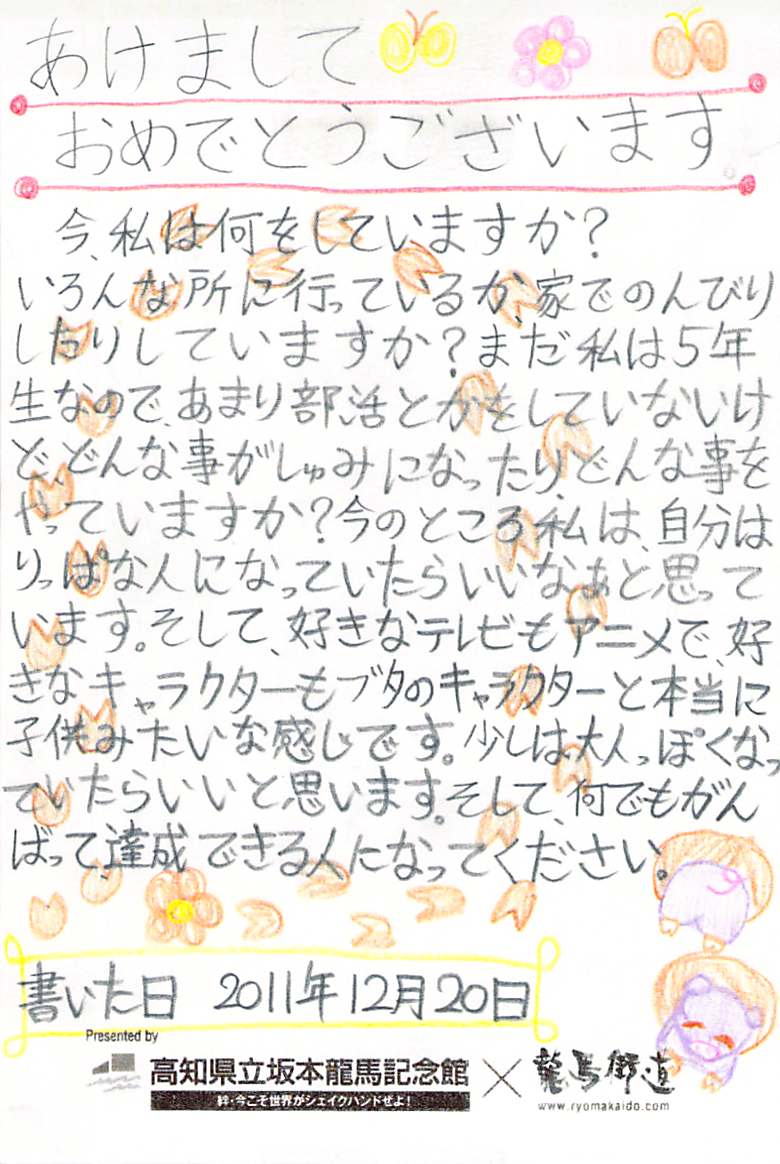 あけまして
おめでとうございます。
今、私は何をしていますか?
いろんな所に行っているか、家でのんびり
したりしていますか?まだ私は5年
生なので、あまり部活とかをしていないけ
ど、どんな事がしゅみになったり、どんな事を
やっていますか?今のところ、私は、自分は
りっぱな人になっていたらいいなぁと思って
います。そして、好きなテレビもアニメで、好
きなキャラクターもブタのキャラクターと本当に
子供みたいな感じです。少しは、大人っぽくなっ
ていたらいいと思います。そして、何でもがん
ばって、達成できる人になってください。
書いた日 2011年12月20日
Presented by
高知県立坂本龍馬記念館 × 龍馬街道
絆・今こそ世界がシェイクハンドぜよ!
www.ryomakaido.com